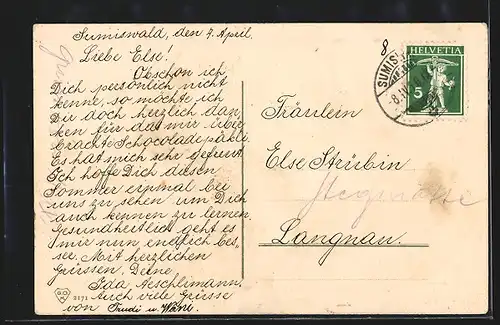 Sumiswald, den 7. April.
Liebe Else!
Obschon ich
Dich persönlich nicht
kenne, so möchte ich
Dir doch herzlich dan-
ken für das mir über-
brachte Schocoladepäkli.
Es hat mich sehr gefreut.
Ich hoffe Dich diesen
Sommer einmal bei
uns zu sehen um Dich
auch kennen zu lernen.
Gesundheitlich geht es
mir nun endlich bes-
ser. Mit herzlichen
Grüssen, Deine
Ida Aeschlimann.
Auch viele Grüsse
von Trudi u.
3171
8
HELVETIA
5
SUMIS
-8.IV
Fräulein
Else Strübin
Langnau.